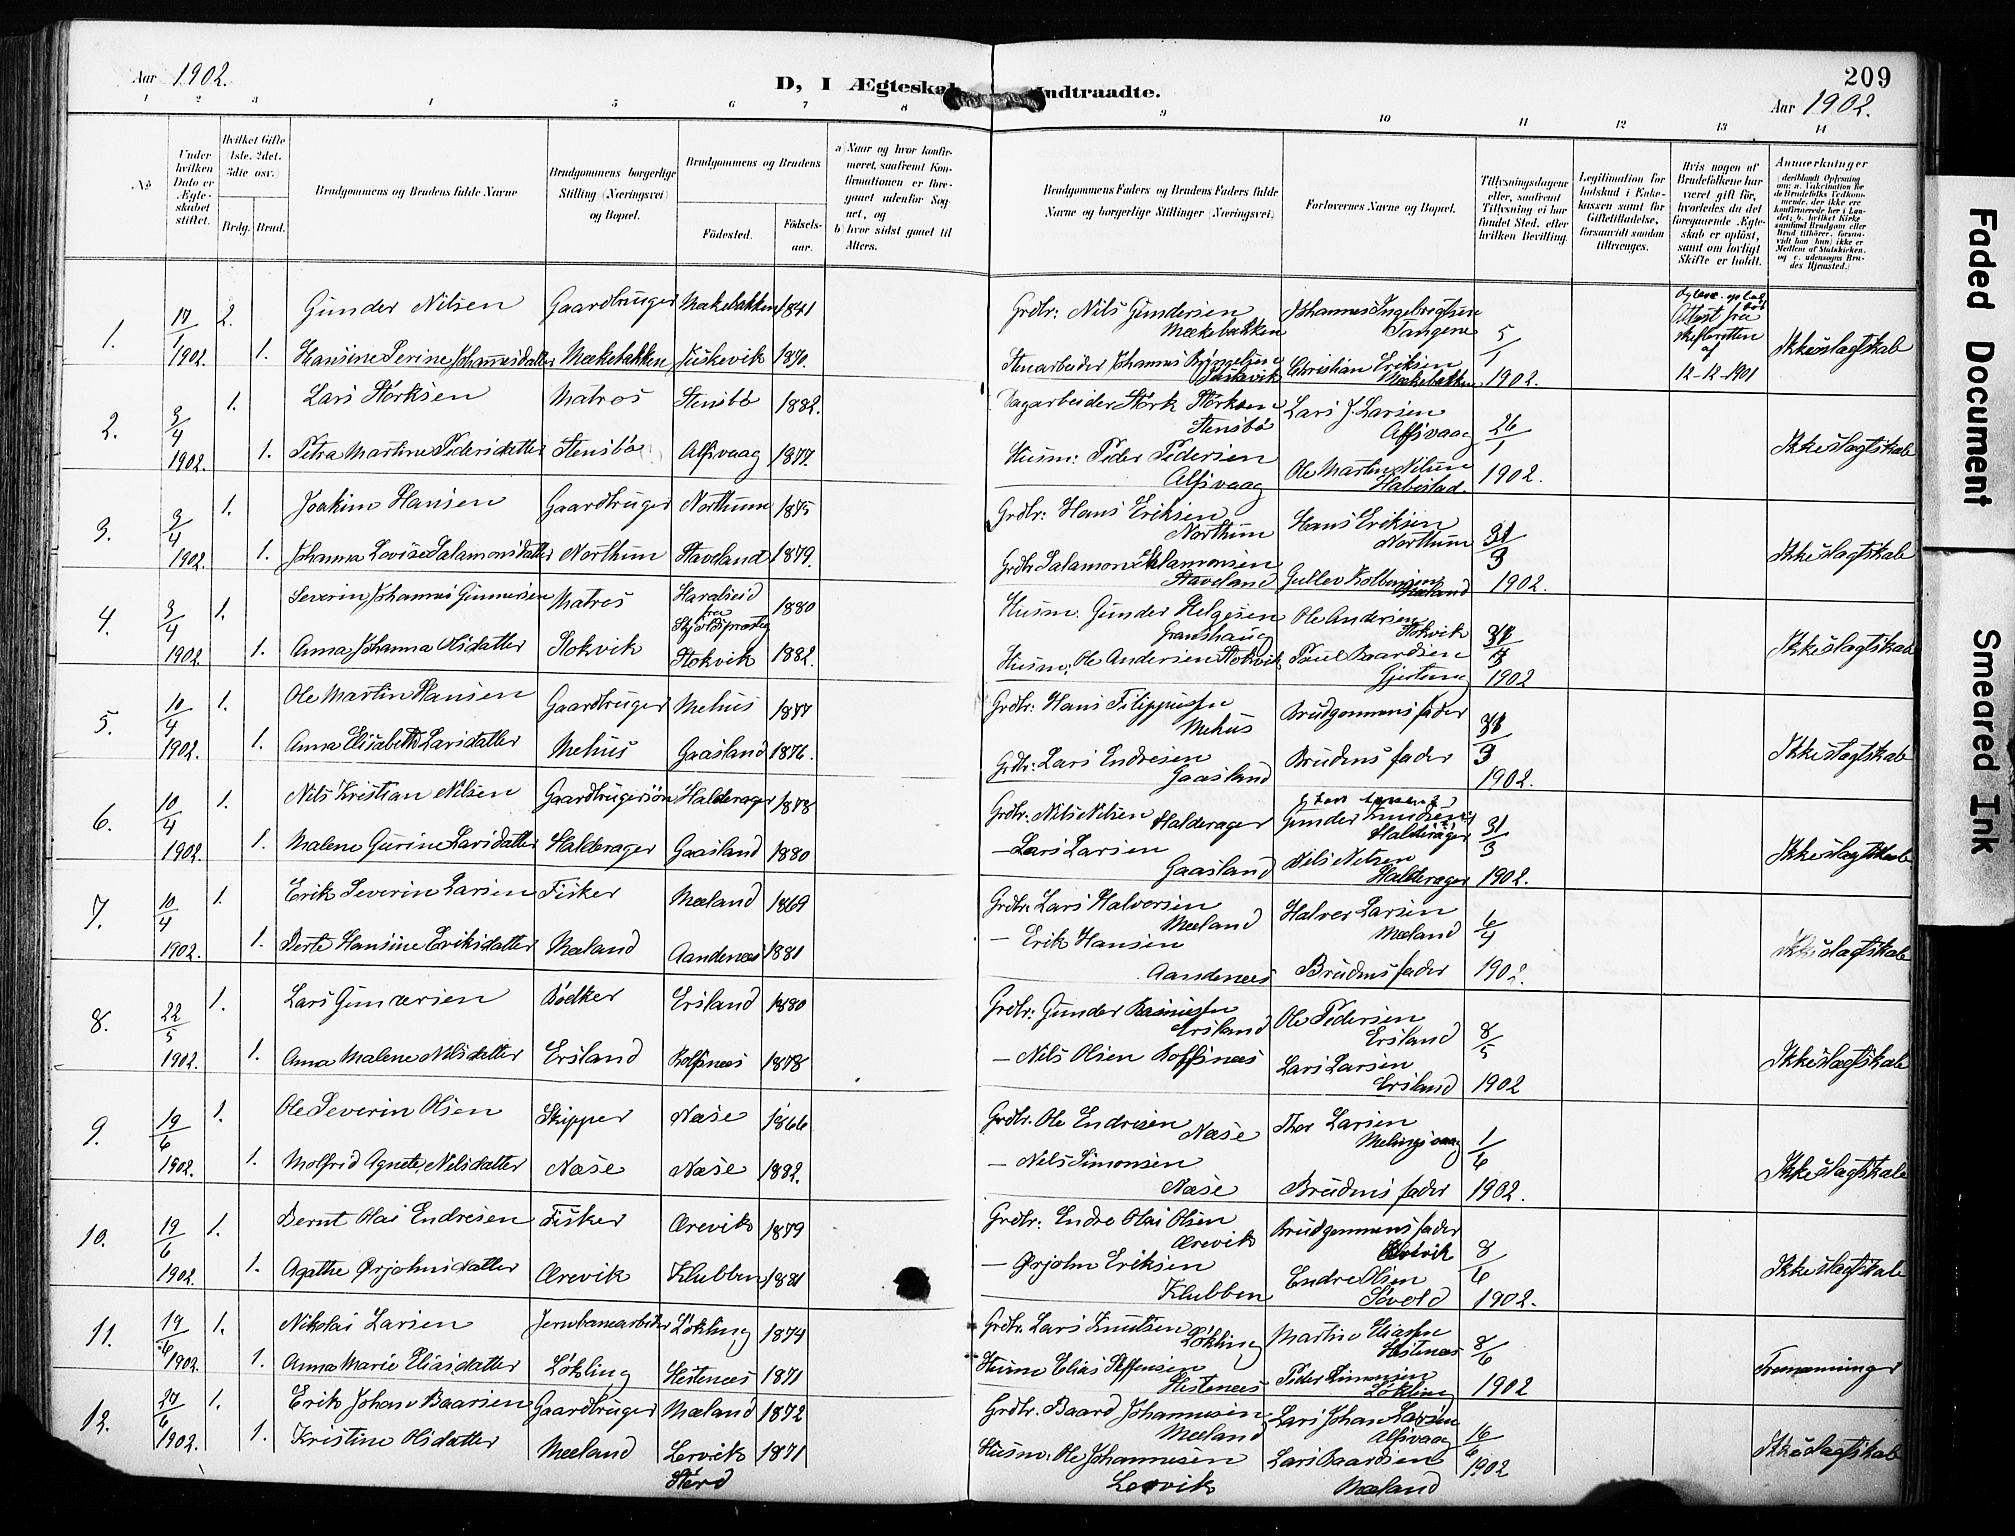 Aar 1902.
D, I Ægteskab Indtraadte.
209
Aar 1902.
1 2 3 4 5 6 7 8 9 10 11 12 13 14
No
Under hvilken Dato er Ægteskabet stiftet.
Hvilket Gifte 1ste, 2det, 3die osv.
Brdg. Brud.
Brudgommens og Brudens fulde Navne
Brudgommens borgerlige Stilling (Næringsvei) og Bopæl.
Brudgommens og Brudens
Fødested.
Fødselsaar.
a) Naar og hvor konfirmeret, saafremt Konfirmationen er foregaaet udenfor Sognet, og
b) hvor sidst gaaet til Alters.
Brudgommens Faders og Brudens Faders fulde Navne og borgerlige Stillinger (Næringsvei)
Forlovernes Navne og Bopæl.
Tillysningsdagene eller, saafremt Tillysning ei har fundet Sted, efter hvilken Bevilling.
Legitimation for Indskud i Enkekassen samt for Giftetilladelse, forsaavidt saadan tiltrænges.
Hvis nogen af Brudefolkene har været gift før, hvorledes da det foregaaende Ægteskab er opløst, samt om lovligt Skifte er holdt.
Anmerkninger
1. 17/1 1902. 2. Gunder Nilsen Gaardbruger Mækebakken 1841 Grdbr: Nils Gundersen Mækebakken Johannes Ingebrigtsen Tangene 5/1 1902. Attest fra Skifteretten af 12-12-1901 Ikke slagtskab
1. Hansine Serine Johannesdatter Mækebakken Fuskevik 1870. Stenarbeider Johannes Fuskevik Christian Eriksen Mækebakken
2. 3/4 1902. 1. Lars Størksen Matros Stensbø 1882. Dagarbeider Størk Størksen Stensbø Lars J. Larsen Alfsvaag 26/1 1902. Ikke slagtskab
1. Petra Martine Pedersdatter Stensbø Alfsvaag 1877. Husm: Peder Pedersen Alfsvaag Ole Martin Nilsen Habestad.
3. 3/4 1902. 1. Joakim Hansen Gaardbruger Northum 1875 Grdbr: Hans Eriksen Northum Hans Eriksen Northum 31/3 1902. Ikke slagtskab
1. Johanna Lovise Salamonsdatter Northum Staveland 1879. Grdbr Salamon Salamonsen Staveland Gullev Kolbensen Mæland
4. 3/4 1902. 1. Severin Johannes Gundersen Matros Haralseid fra Skjoldspræsteg 1880 Husm: Gunder Helgesen Grønshaug Ole Andersen Stokvik 31/3 1902 Ikke slagtskab
1. Anna Johanna Olsdatter Stokvik Stokvik 1882. Husm: Ole Andersen Stokvik Poul Baardsen Gjertune
5. 10/4 1902. 1. Ole Martin Hansen Gaardbruger Mehus 1877 Grdbr: Hans Filippusen Mehus Brudgommens fader 31/3 1902. Ikke slagtskab
1. Anna Elisabeth Larsdatter Mehus Gaasland 1876. Grdbr: Lars Endresen Gaasland Brudens fader
6. 10/4 1902. 1. Nils Kristian Nilsen Gaardbrugersøn Halderager 1878 Grdbr. Nils Nilsen Halderager Gunder Knudsen Halderager 31/3 1902. Ikke slagtskab
1. Malene Gurine Larsdatter Halderager Gaasland 1880 — Lars Larsen Gaasland Nils Nilsen Halderager
7. 10/4 1902. 1. Erik Severin Larsen Fisker Mæland 1869 Grdbr. Lars Halversen Mæland Halver Larsen Mæland 6/4 1902. Ikke slagtskab
1. Berte Hansine Eriksdatter Mæland Aandenæs 1881 — Erik Hansen Aandenæs Brudens fader
8. 22/5 1902. 1. Lars Gundersen Bødker Ersland 1880 Grdbr: Gunder Rasmusen Ersland Ole Pedersen Ersland 8/5 1902 Ikke slagtskab
1. Anna Malene Nilsdatter Ersland Rolfsnæs 1878 — Nils Olsen Rolfsnæs Lars Larsen Ersland
9. 19/6 1902. 1. Ole Severin Olsen Skipper Næse 1866 Grdbr. Ole Endresen Næse Thor Larsen Melingsvaag 1/6 1902. Ikke slagtskab
1. Molfrid Agnete Nilsdatter Næse Næse 1882. — Nils Simonsen Næse Brudens fader
10. 19/6 1902. 1. Bernt Olai Endresen Fisker Ørevik 1879 Grdbr: Endre Olai Olsen Ørevik Brudgommens fader Ørevik 8/6 1902. Ikke slagtskab
1. Agathe Ørjohnsdatter Ørevik Klubben 1881 — Ørjohn Eriksen Klubben Endre Olsen Søvold
11. 19/6 1902. 1. Nikolai Larsen Jernbanearbeider Løkling 1874 Grdbr. Lars Knutsen Løkling Martin Eliasen Hestenæs 8/6 1902 Fremmninger
1. Anna Marie Eliasdatter Løkling Hestenæs 1871 Husm Elias Steffensen Hestenæs Peder Simonsen Løkling
12. 27/6 1902. 1. Erik Johan Baarsen Gaardbruger Mæland 1872 Grdbr. Baard Johannesen Mæland Lars Johan Larsen Alfsvaag 16/6 1902 Ikke slagtskab
1. Kristine Olsdatter Mæland Lervik Størd 1871 Husm: Ole Johannesen Lervik Lars Baardsen Mæland
Faded Document
Smeared Ink